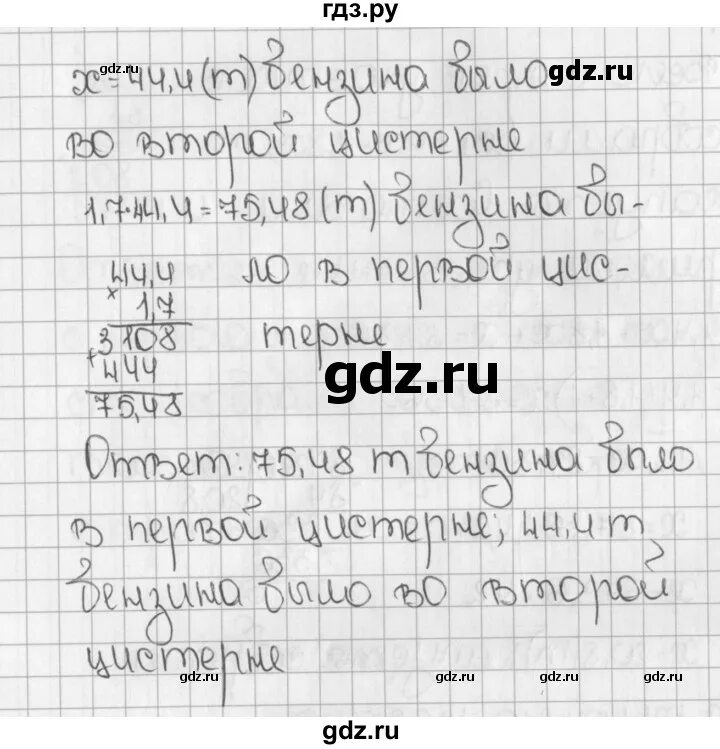 гдз.ру
gdz.ru gdz.ru
x=44,4(т) бензина было
gdz.ru
во второй цистерне
1,7·44,4=75,48(т) бензина бы-
44,4 ло в первой цис-
×
1,7
3108 терне
+
444
75,48
gdz.ru
Ответ: 75,48 т бензина было
в первой цистерне; 44,4 т
бензина было во второй
цистерне
gdz.ru gdz.ru gdz.ru
gdz.ru